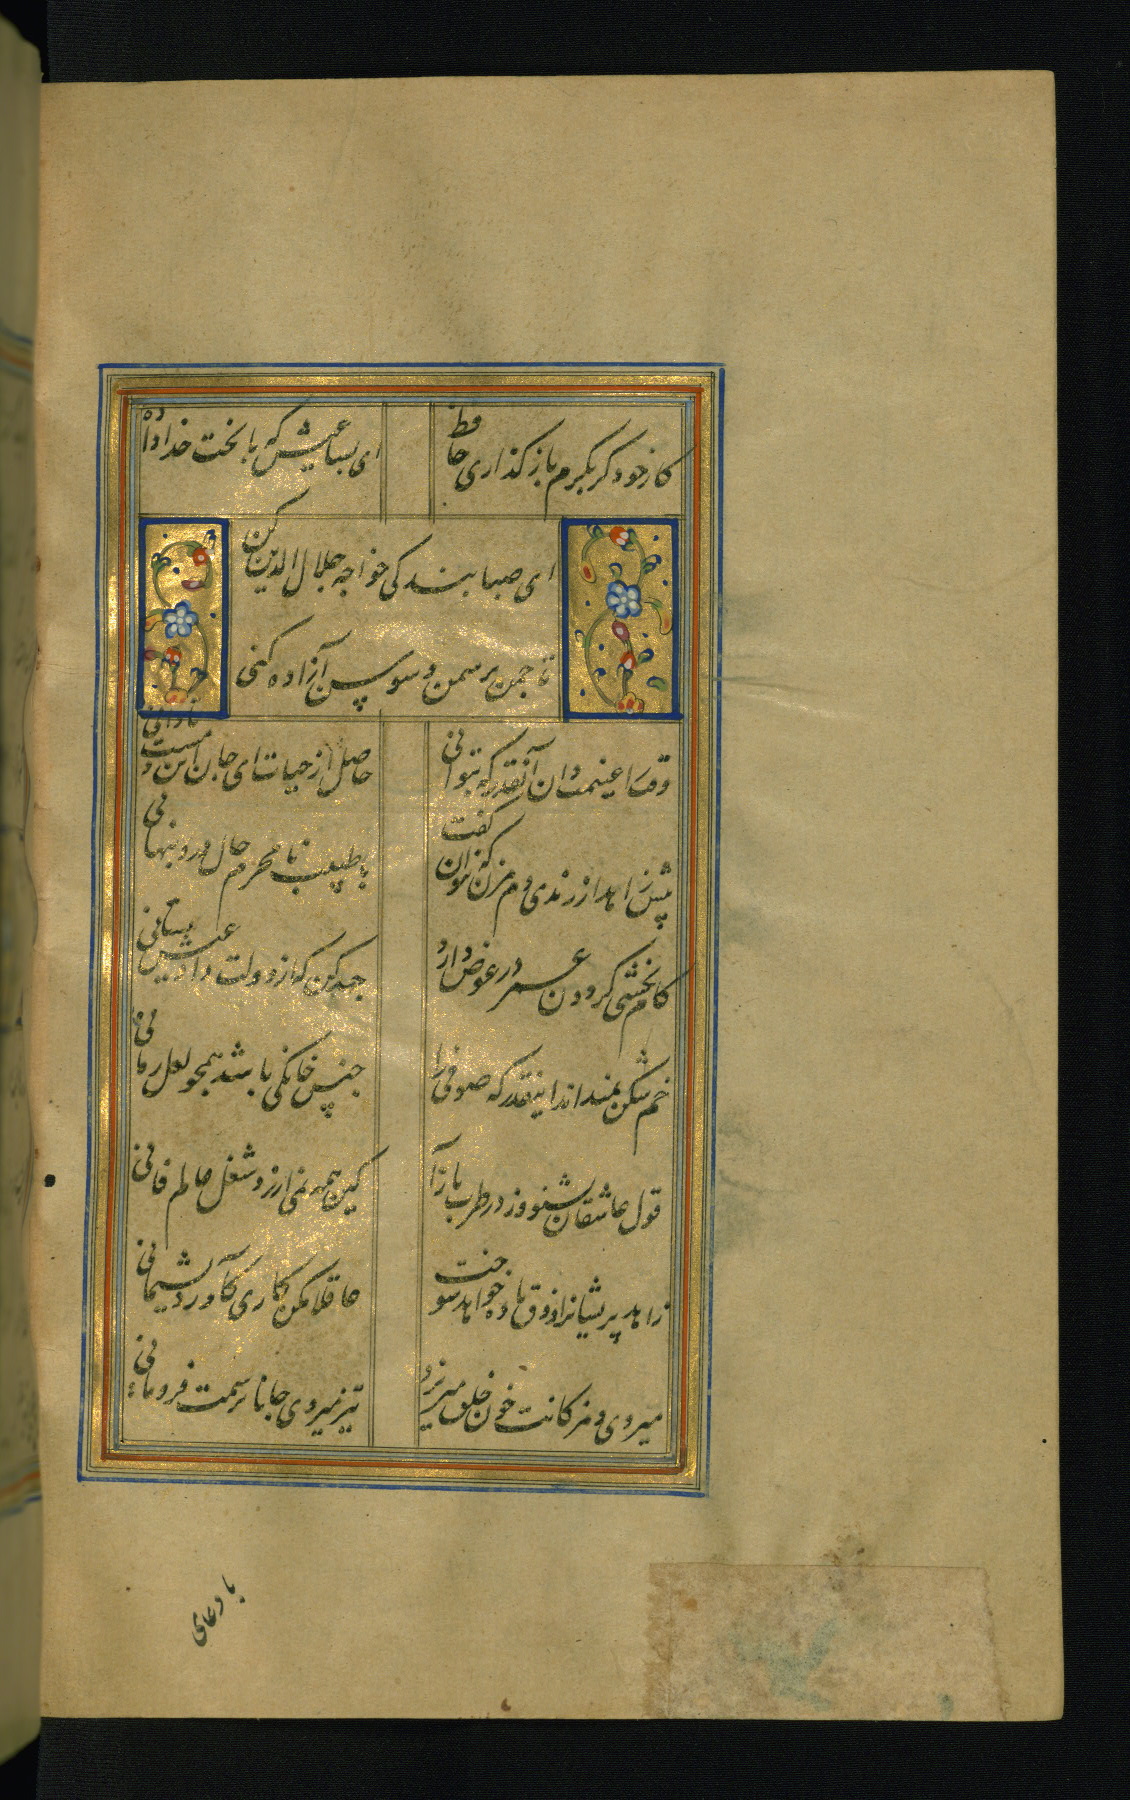 کار خود گر بکرم باز گذاری حافظ
ای بسا عیش که با بخت خداداده
ای صبا بندگی خواجه جلال الدین کن
تا جهن بر سمن و سوسن آزاده کنی
وقت را غنیمت دان آنقدر که بتوانی
حاصل از حیات ای جان این دمست تا دانی
پیش زاهد از رندی دم مزن که نتوان گفت
با طبیب نامحرم حال درد پنهانی
کام بخشی گردون عمر در عوض دارد
جهد کن که از دولت داد عیش بستانی
خم شکن نمیداند اینقدر که صوفی را
جنس خانگی باشد همچو لعل رمانی
قول عاشقان بشنو وز در طرب بازآ
کین همه نمی ارزد شغل عالم فانی
زاهد پشیمانرا ذوق باده خواهد سوخت
عاقلا مکن کاری کآورد پشیمانی
میروی و مژگانت خون خلق میریزد
تیز میروی جانا ترسمت فرو مانی
با دعای